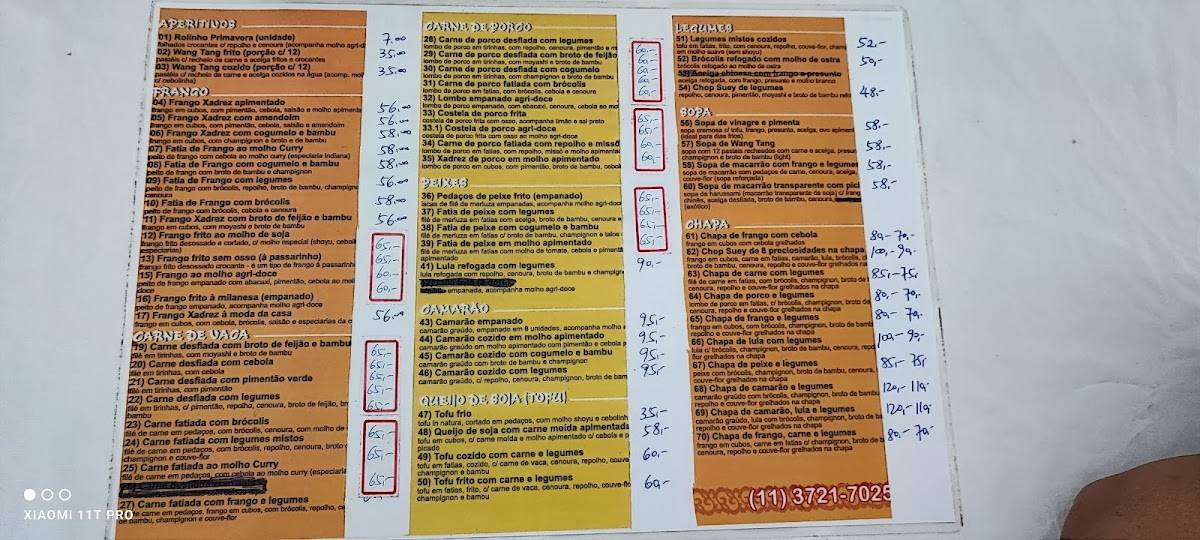 APERITIVOS
01) Rolinho Primavera (unidade) 7.00
folhados crocantes c/ repolho e cenoura (acompanha molho agri-d
02) Wang Tang frito (porção c/ 12) 35.00
pastéis c/ recheio de carne e acelga fritos e crocantes
03) Wang Tang cozido (porção c/ 12) 35.00
pastéis c/ recheio de carne e acelga cozidos na água (acomp. mol
c/ cebolinha)
FRANGO
04) Frango Xadrez apimentado 56.00
frango em cubos, com pimentão, cebola, salsão e molho apimen
05) Frango Xadrez com amendoim 56.00
frango em cubos, com pimentão, cebola, salsão e amendoim
06) Frango Xadrez com cogumelo e bambu 58.00
frango em cubos, com champignon e broto de bambu
07) Fatia de Frango ao molho Curry 58.00
peito de frango com cebola ao molho curry (especiaria indiana)
08) Fatia de Frango com cogumelo e bambu 58.00
peito de frango com broto de bambu e champignon
09) Fatia de Frango com legumes 56.00
peito de frango com brócolis, repolho, broto de bambu, champign
cenoura
10) Fatia de Frango com brócolis 58.00
peito de frango com brócolis, cebola e cenoura
11) Frango Xadrez com broto de feijão e bambu 56.00
frango em cubos, com moyashi e broto de bambu
12) Frango frito ao molho de soja 65,-
frango frito desossado e cortado, c/ molho especial (shoyu, cebol
especiarias)
13) Frango frito sem osso (à passarinho) 65,-
frango frito desossado crocante - é um tipo de frango à passarinh
15) Frango ao molho agri-doce 60,-
peito de frango empanado com abacaxi, pimentão, cebola ao mol
doce
16) Frango frito à milanesa (empanado) 60,-
peito de frango empanado, acompanha molho agri-doce
17) Frango Xadrez à moda da casa 56.00
frango em cubos, com cebola, brócolis, salsão e especiarias da c
CARNE DE VACA
19) Carne desfiada com broto de feijão e bambu 65,-
filé em tirinhas, com moyashi e broto de bambu
20) Carne desfiada com cebola 65,-
filé em tirinhas, com cebola
21) Carne desfiada com pimentão verde 65,-
filé em tirinhas, com pimentão
22) Carne desfiada com legumes 65,-
filé em tirinhas, c/ pimentão, repolho, cenoura, broto de feijão, br
bambu
23) Carne fatiada com brócolis 65,-
filé de carne em pedaços, com brócolis, cenoura, com molho de
24) Carne fatiada com legumes mistos 65,-
filé de carne em pedaços, com brócolis, repolho, cenoura, broto
champignon e couve-flor
25) Carne fatiada ao molho Curry 65,-
filé de carne em pedaços, com cebola ao molho curry (especiaria
27) Carne fatiada com frango e legumes
filé de carne em pedaços, frango em cubos, com brócolis, repolho, ce
de bambu, champignon e couve-flor
CARNE DE PORCO
28) Carne de porco desfiada com legumes 60,-
lombo de porco em tirinhas, com repolho, cenoura, pimentão, e m
29) Carne de porco desfiada com broto de feijão 60,-
lombo de porco em tirinhas, com moyashi e broto de bambu
30) Carne de porco desfiada com cogumelo 60,-
lombo de porco em tirinhas, com champignon e broto de bambu
31) Carne de porco fatiada com brócolis 60,-
lombo de porco em fatias, com brócolis, cebola e cenoura
32) Lombo empanado agri-doce 60,-
lombo de porco empanado, com abacaxi, cenoura, cebola ao mo
33) Costela de porco frita 65,-
costela de porco frita com osso, acompanha limão e sal preto
33.1) Costela de porco agri-doce 65,-
costela de porco frita com osso ao molho agri-doce
34) Carne de porco fatiada com repolho e missô 60,-
lombo de porco em fatias, com repolho, missô e molho apimentad
35) Xadrez de porco em molho apimentado 60,-
lombo de porco em cubos, com pimentão, cebola, broto de bambu
PEIXES
36) Pedaços de peixe frito (empanado) 65,-
iscas de filé de merluza empanadas, acompanha molho agri-doce
37) Fatia de peixe com legumes 65,-
filé de merluza em fatias com acelga, broto de bambu, cenoura e
38) Fatia de peixe com cogumelo e bambu 65,-
filé de merluza em fatias c/ broto de bambu, champignon e talos
39) Fatia de peixe em molho apimentado 65,-
filé de merluza em fatias com molho de tomate, cebola e piment
apimentado
41) Lula refogada com legumes 90,-
lula refogada com repolho, cenoura, broto de bambu e champign
empanada, acompanha molho agri-doce
CAMARÃO
43) Camarão empanado 95,-
camarão graúdo, empanado em 8 unidades, acompanha molho
44) Camarão cozido em molho apimentado 95,-
camarão graúdo em molho apimentado com pimentão e cebola p
45) Camarão cozido com cogumelo e bambu 95,-
camarão graúdo com broto de bambu e champignon
46) Camarão cozido com legumes 95,-
camarão graúdo, c/ repolho, cenoura, champignon, broto de bam
QUEIJO DE SOJA (TOFU)
47) Tofu frio 35,-
tofu in natura, cortado em pedaços, com molho shoyu e cebolinh
48) Queijo de soja com carne moída apimentada 58,-
tofu em cubos, c/ carne moída e molho apimentado c/ cebola e p
picado
49) Tofu cozido com carne e legumes 60,-
tofu em fatias, cozido, c/ carne de vaca, cenoura, repolho, couve
champignon e bambu
50) Tofu frito com carne e legumes 60,-
tofu em fatias, frito, c/ carne de vaca, cenoura, repolho, couve-flo
champignon e bambu
LEGUMES
51) Legumes mistos cozidos 52,-
tofu em fatias, frito, com cenoura, repolho, couve-flor, cham
em molho suave (sem shoyu)
52) Brócolis refogado com molho de ostra 50,-
brócolis refogado ao molho de ostra
53) Acelga chinesa com frango e presunto
acelga refogada, com frango, presunto e molho branco
54) Chop Suey de legumes 48,-
repolho, cenoura, pimentão, moyashi e broto de bambu refo
SOPA
56) Sopa de vinagre e pimenta 58,-
sopa cremosa c/ tofu, frango, presunto, acelga, ovo apiment
(ideal para dias frios)
57) Sopa de Wang Tang 58,-
sopa com 12 pastéis recheados com carne e acelga, presu
champignon e broto de bambu (light)
58) Sopa de macarrão com frango e legumes 58,-
sopa de macarrão com pedaços de carne, cenoura, acelga,
couve-flor (sopa reforçada)
60) Sopa de macarrão transparente com picl 58,-
sopa de harussami (macarrão transparente de soja) c/ frang
chinês, acelga desfiada, broto de bambu, cenoura,
(exótico)
CHAPA
61) Chapa de frango com cebola 80,- 70,-
frango em cubos com cebola grelhados
62) Chop Suey de 8 preciosidades na chapa 100,- 90,-
frango em cubos, carne em fatias, camarão, lula, brócolis, c
broto de bambu, cenoura, repolho e couve-flor grelhados na chapa
63) Chapa de carne com legumes 85,- 75,-
filé de carne em fatias com brócolis, champignon, broto de bam
cenoura, repolho e couve-flor grelhados na chapa
64) Chapa de porco e legumes 80,- 70,-
lombo de porco em fatias, c/ brócolis, champignon, broto de bam
cenoura, repolho e couve-flor grelhados na chapa
65) Chapa de frango e legumes 80,- 70,-
frango em cubos, com brócolis, champignon, broto de bamb
repolho e couve-flor grelhados na chapa
66) Chapa de lula com legumes 100,- 90,-
lula c/ brócolis, champignon, broto de bambu, cenoura, repo
flor grelhados na chapa
67) Chapa de peixe e legumes 85,- 75,-
peixe com brócolis, champignon, broto de bambu, cenoura,
couve-flor grelhados na chapa
68) Chapa de camarão e legumes 120,- 110,-
camarão graúdo com brócolis, champignon, broto de bambu
repolho e couve-flor grelhados na chapa
69) Chapa de camarão, lula e legumes 120,- 110,-
camarão graúdo, lula com brócolis, champignon, broto de bam
cenoura, repolho e couve-flor grelhados na chapa
70) Chapa de frango, carne e legumes 80,- 70,-
frango em cubos, carne em fatias c/ champignon, broto de b
cenoura, repolho e couve-flor grelhados na chapa
(11) 3721-7025
XIAOMI 11T PRO